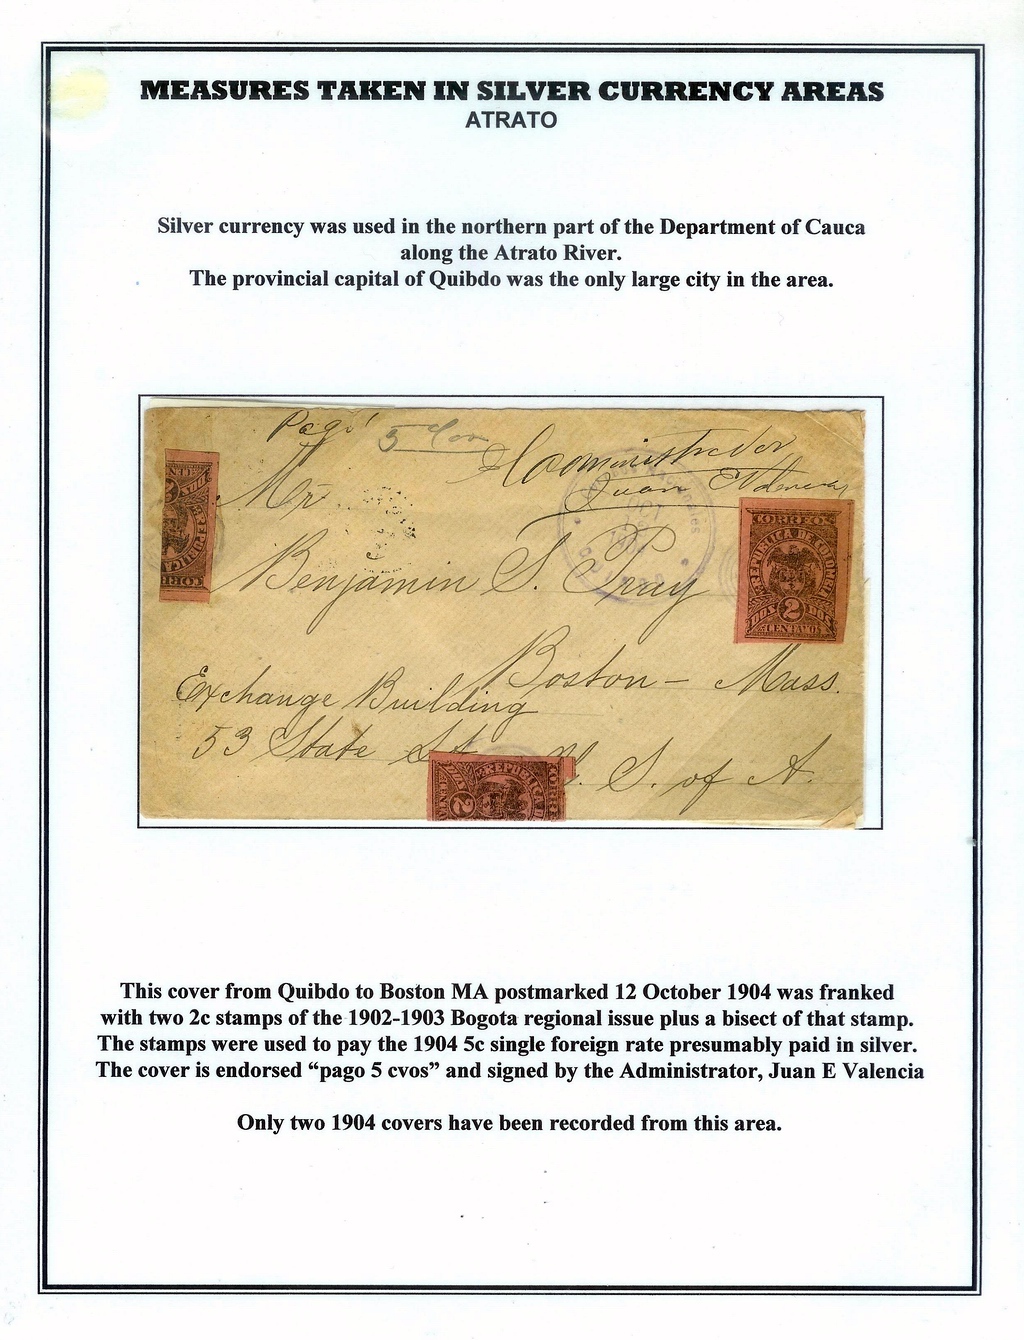 MEASURES TAKEN IN SILVER CURRENCY AREAS
ATRATO
Silver currency was used in the northern part of the Department of Cauca
along the Atrato River.
The provincial capital of Quibdo was the only large city in the area.
Pagó 5
Administrador
Juan E Valencia
Mr.
Benjamin S. Pray
Boston - Mass.
Exchange Building
53 State St. U. S. of A.
OCT
CORREOS
REPUBLICA DE COLOMBIA
DOS 2 DOS
CENTAVOS
REPUBLICA
2
REPUBLICA
This cover from Quibdo to Boston MA postmarked 12 October 1904 was franked
with two 2c stamps of the 1902-1903 Bogota regional issue plus a bisect of that stamp.
The stamps were used to pay the 1904 5c single foreign rate presumably paid in silver.
The cover is endorsed “pago 5 cvos” and signed by the Administrator, Juan E Valencia
Only two 1904 covers have been recorded from this area.